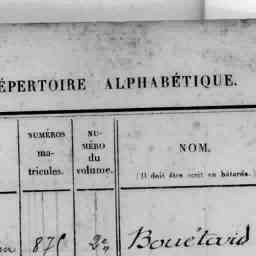 ÉPERTOIRE ALPHABÉTIQUE.
NUMÉROS
ma-
tricules.
NU-
MÉRO
du
volume.
NOM.
(Il doit être écrit en bâtarde.)
875 2e Bouétard